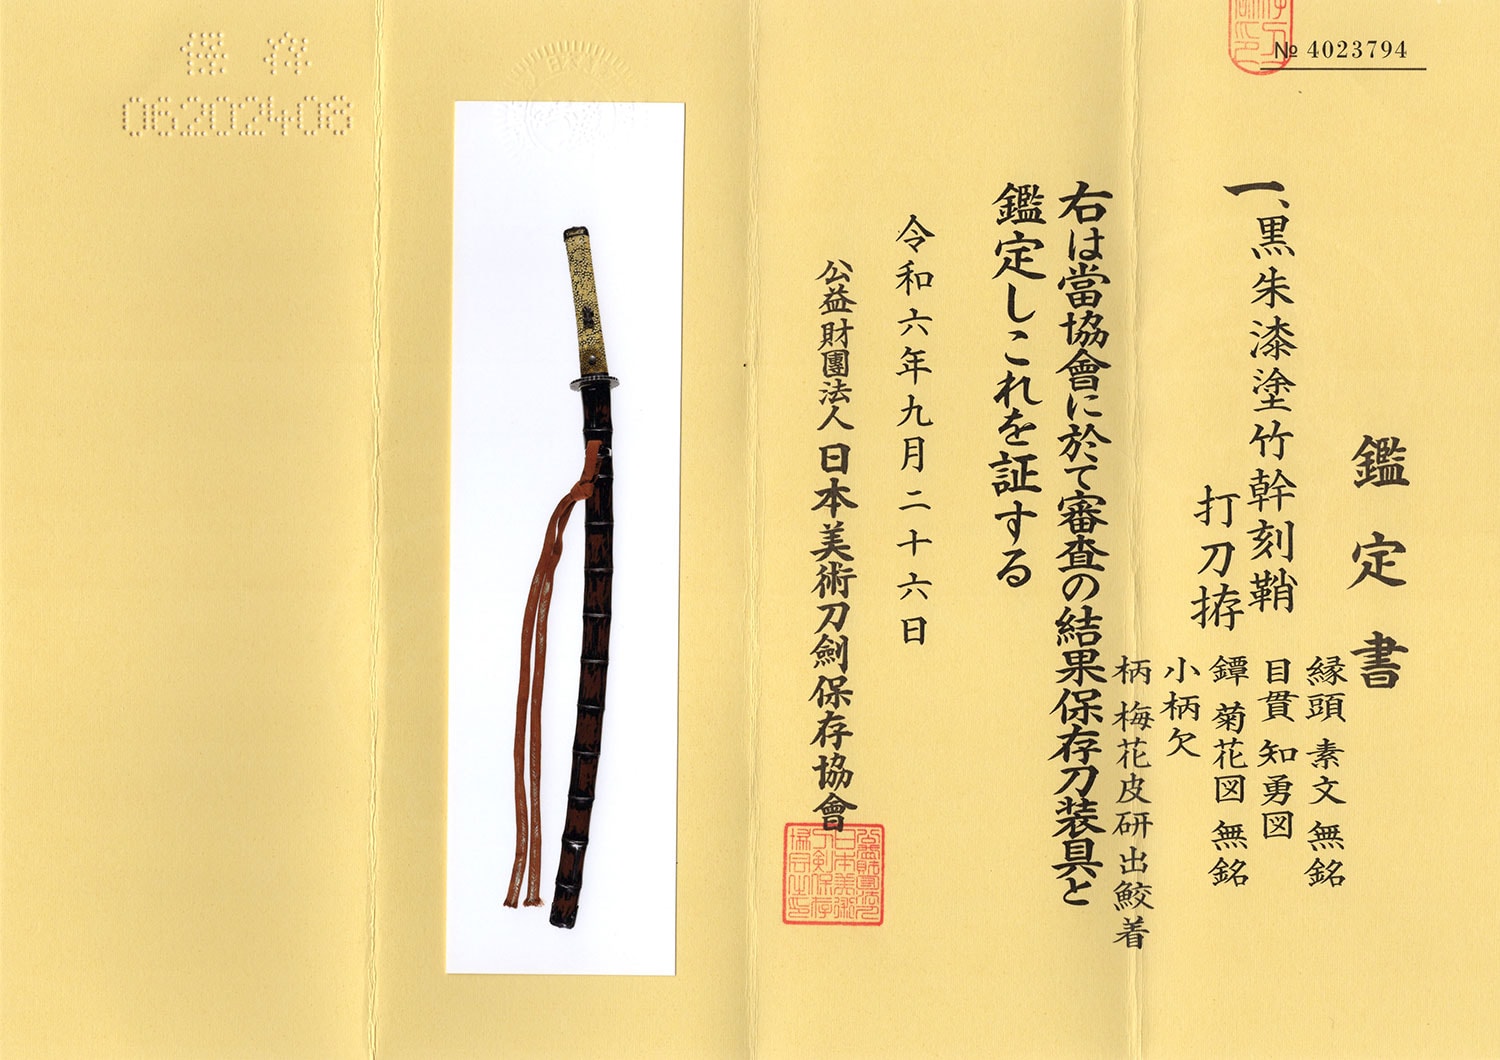 № 4023794
鑑定書
一、黒朱漆塗竹幹刻鞘
打刀拵
縁頭 素文 無銘
目貫 知勇図
鐔 菊花図 無銘
小柄欠
柄 梅花皮研出鮫着
右は當協會に於て審査の結果保存刀装具と
鑑定しこれを証する
令和六年九月二十六日
公益財團法人 日本美術刀劍保存協會
保存
06202408